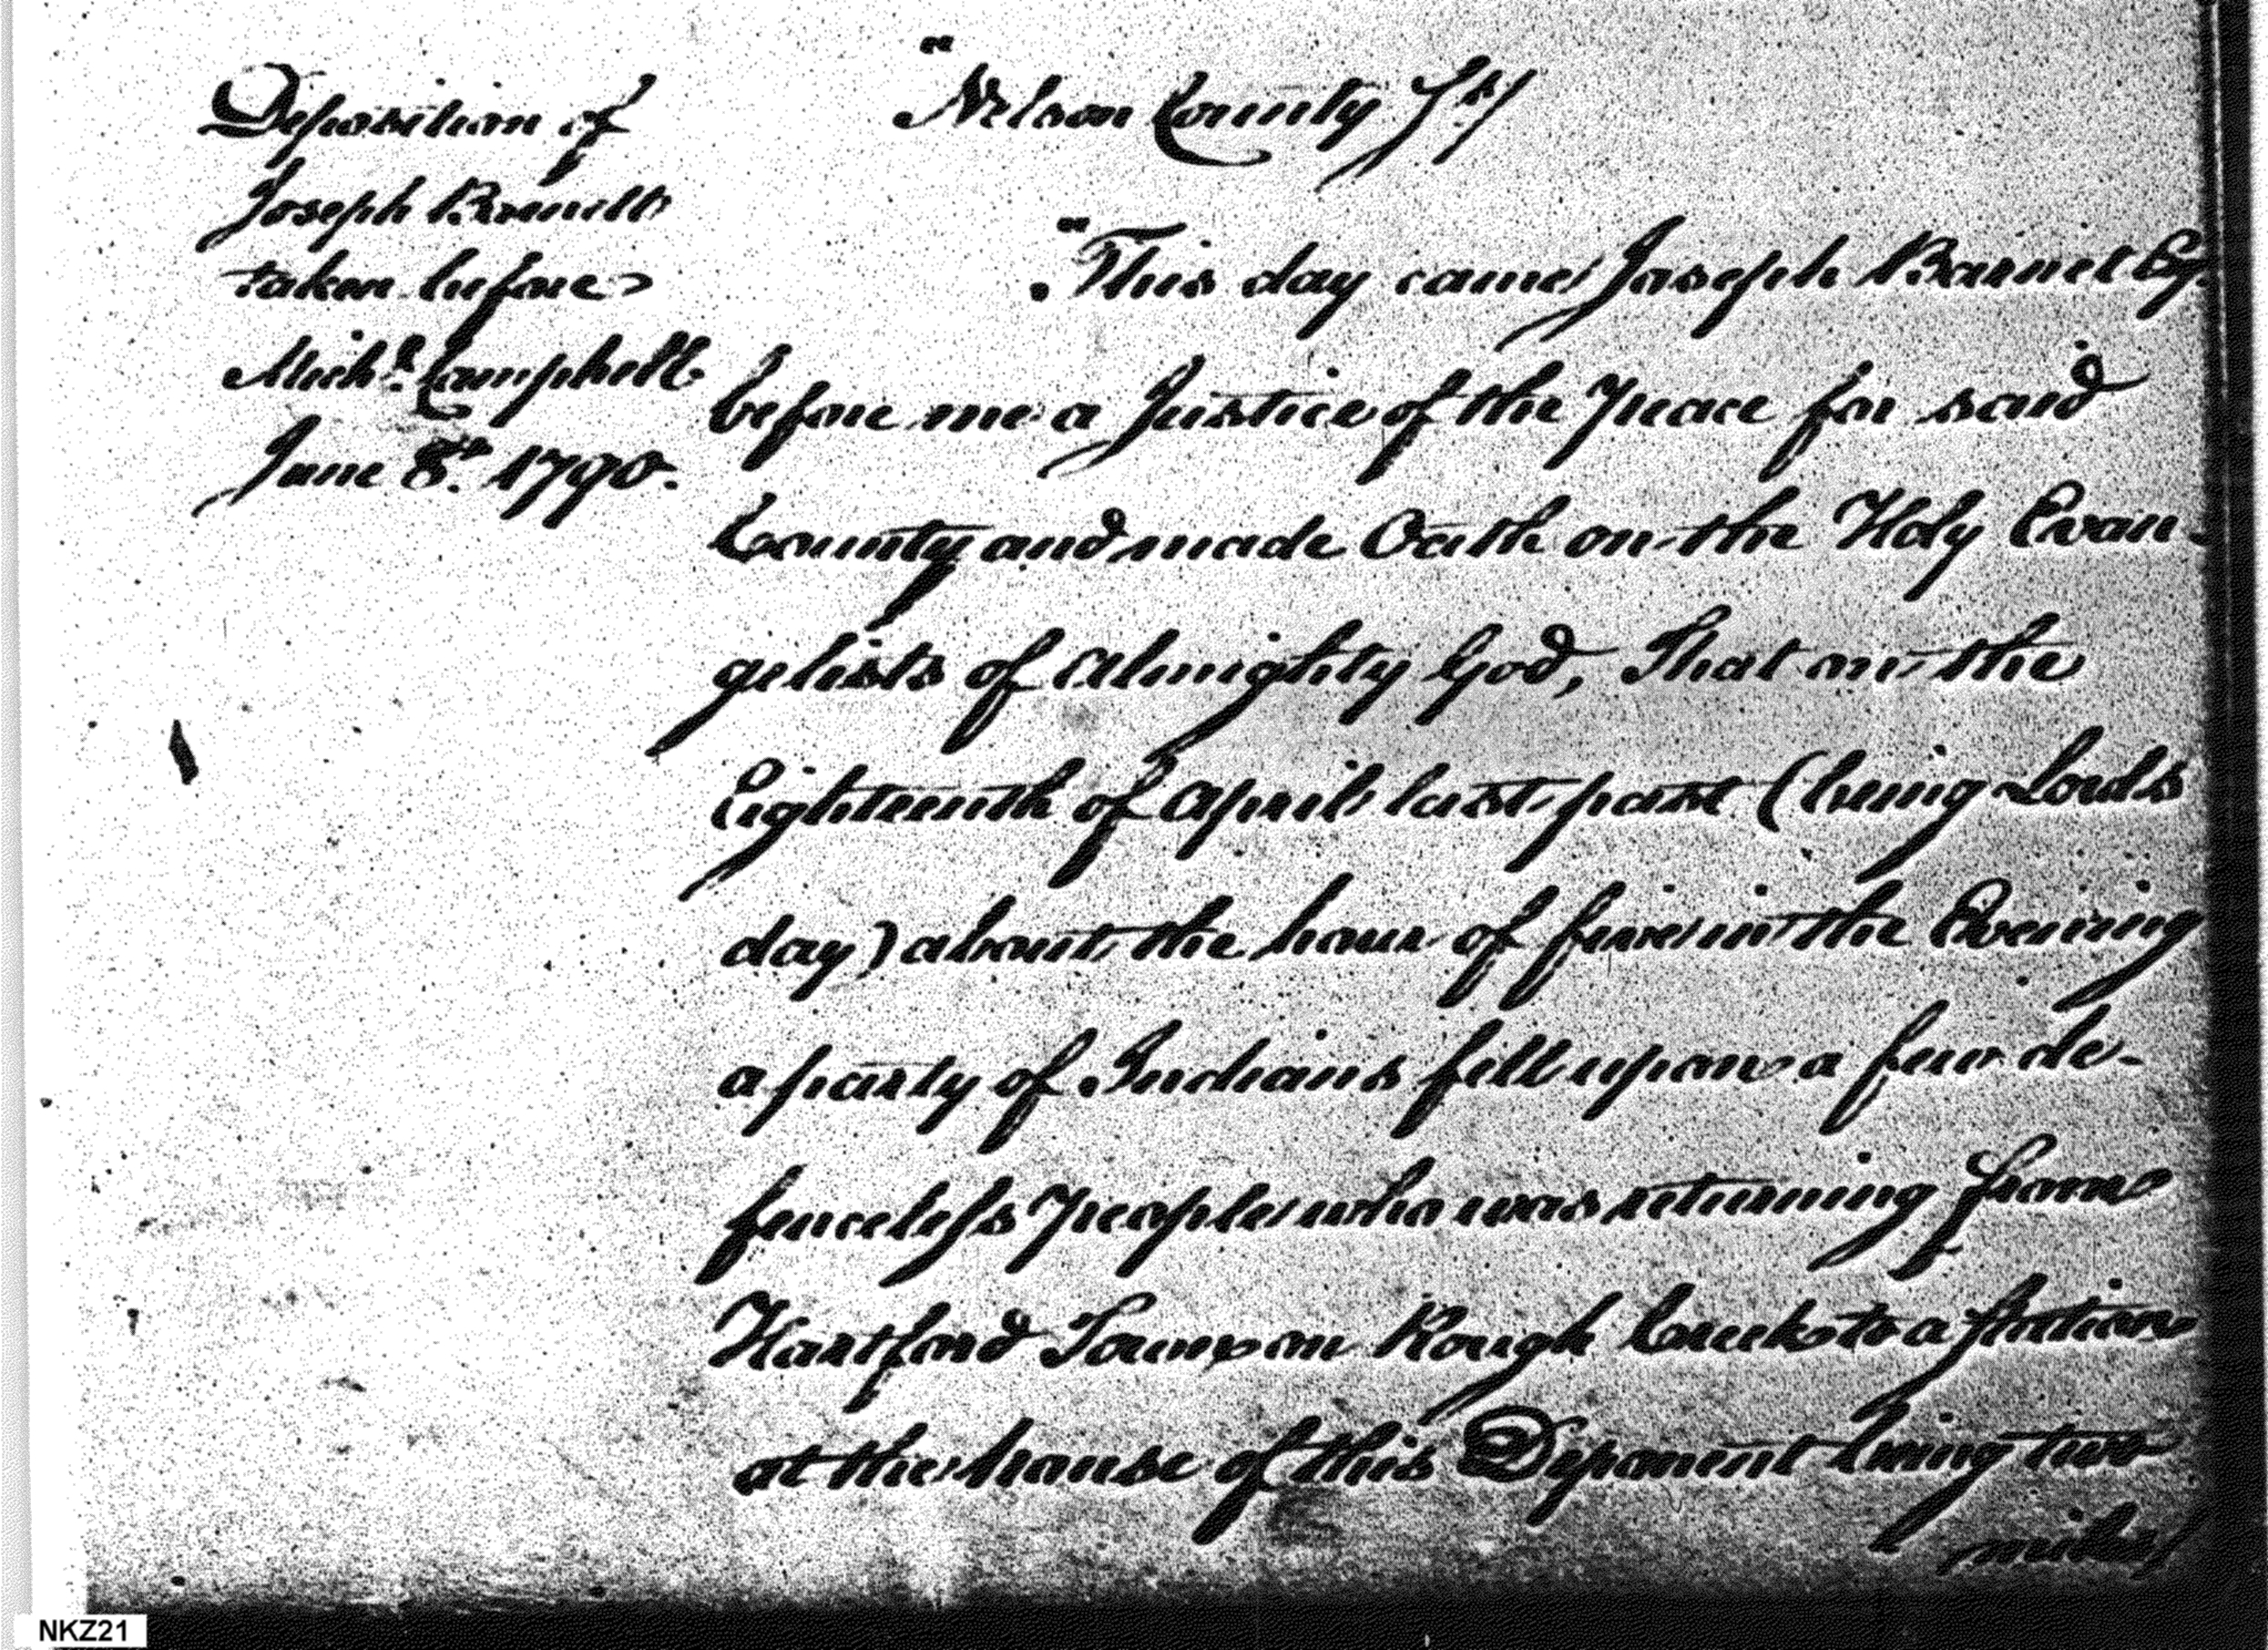 Deposition of
Joseph Barnett
taken before
Mich.l Campbell
June 8th. 1790.
"Nelson County Ss/
"This day came Joseph Barnet Esq.
before me a Justice of the Peace for said
County and made Oath on the Holy Evan-
gelists of Almighty God, That on the
Eighteenth of April last past (being Lords
day) about the hour of five in the Evening
a party of Indians fell upon a few de-
fenceless People who was returning from
Hartford Town on Rough Creek to a Station
at the house of this Deponent living two
miles/
NKZ21